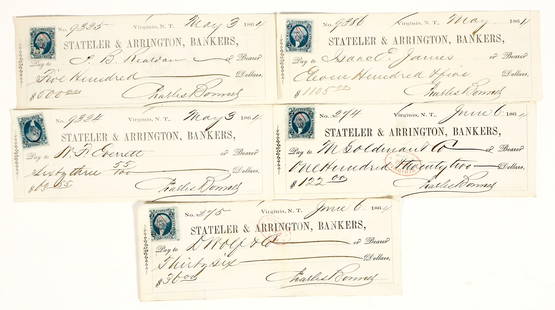 No. 9335 Virginia, N. T. May 3 1864
STATELER & ARRINGTON, BANKERS,
Pay to J. B. or Bearer
Five Hundred Dollars,
Charles Bonner
No. 9286 Virginia, N. T. May 1864
STATELER & ARRINGTON, BANKERS,
Pay to Isaac E. James or Bearer
Eleven Hundred & five Dollars,
$1105.00 Charles Bonner
No. 9334 Virginia, N. T. May 3 1864
STATELER & ARRINGTON, BANKERS,
Pay to W. F. Everett or Bearer
Sixty three 55/100 Dollars,
Charles Bonner
No. 274 Virginia, N. T. June 6 1864
STATELER & ARRINGTON, BANKERS,
Pay to M. Goldman & Co or Bearer
One Hundred & Twenty two Dollars,
$122.00 Charles Bonner
No. 275 Virginia, N. T. June 6 1864
STATELER & ARRINGTON, BANKERS,
Pay to D. Wolf & Co or Bearer
Thirty six Dollars,
$36.00 Charles Bonner